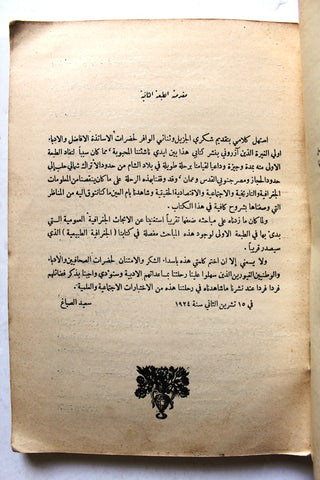 مقدمة الطبعة الثانية
استهل كلامي بتقديم شكري الجزيل وثنائي الوافر لحضرات الاساتذة الافاضل والادباء
اولي الغيرة الذين آزروني بنشر كتابي هذا بين ايدي ناشئتنا المحبوبة مما كان سبباً لنفاد الطبعة
الاولى منه بمدة وجيزة وداعياً لقيامنا برحلة طويلة في بلاد الشام من حدود الاتراك شمالي حلب الى
حدود الحجاز ومصر جنوبي القدس وعمان وقد وقفنا بهذه الرحلة على ما كان ينقصنا من المعلومات
الجغرافية والتاريخية والاجتماعية والاقتصادية الحقيقية وشاهدنا بام العين ما كنا نتوق اليه من المناظر
التي وصفناها بشروح كافية في هذا الكتاب .
ولقد ما زدناه على مباحثه ضعفها تقريباً استغنينا عن الابحاث الجغرافية العمومية التي
بدئ بها في الطبعة الاولى لوجود هذه المباحث مفصلة في كتابنا ( الجغرافية الطبيعية ) الذي
سيصدر قريباً .
ولا يسعني الا ان اختم كلمتي هذه باسداء الشكر والامتنان لحضرات الصحافيين والادباء
والوطنيين الغيورين الذين سهلوا علينا رحلتنا بمساعداتهم الادبية وسنؤدي واجبنا بذكر فضائلهم
فرداً فرداً عند نشرنا ما شاهدناه في رحلتنا هذه من الاختبارات الاجتماعية والعلمية .
في ١٥ تشرين الثاني سنة ١٩٢٤ سعيد الصباغ